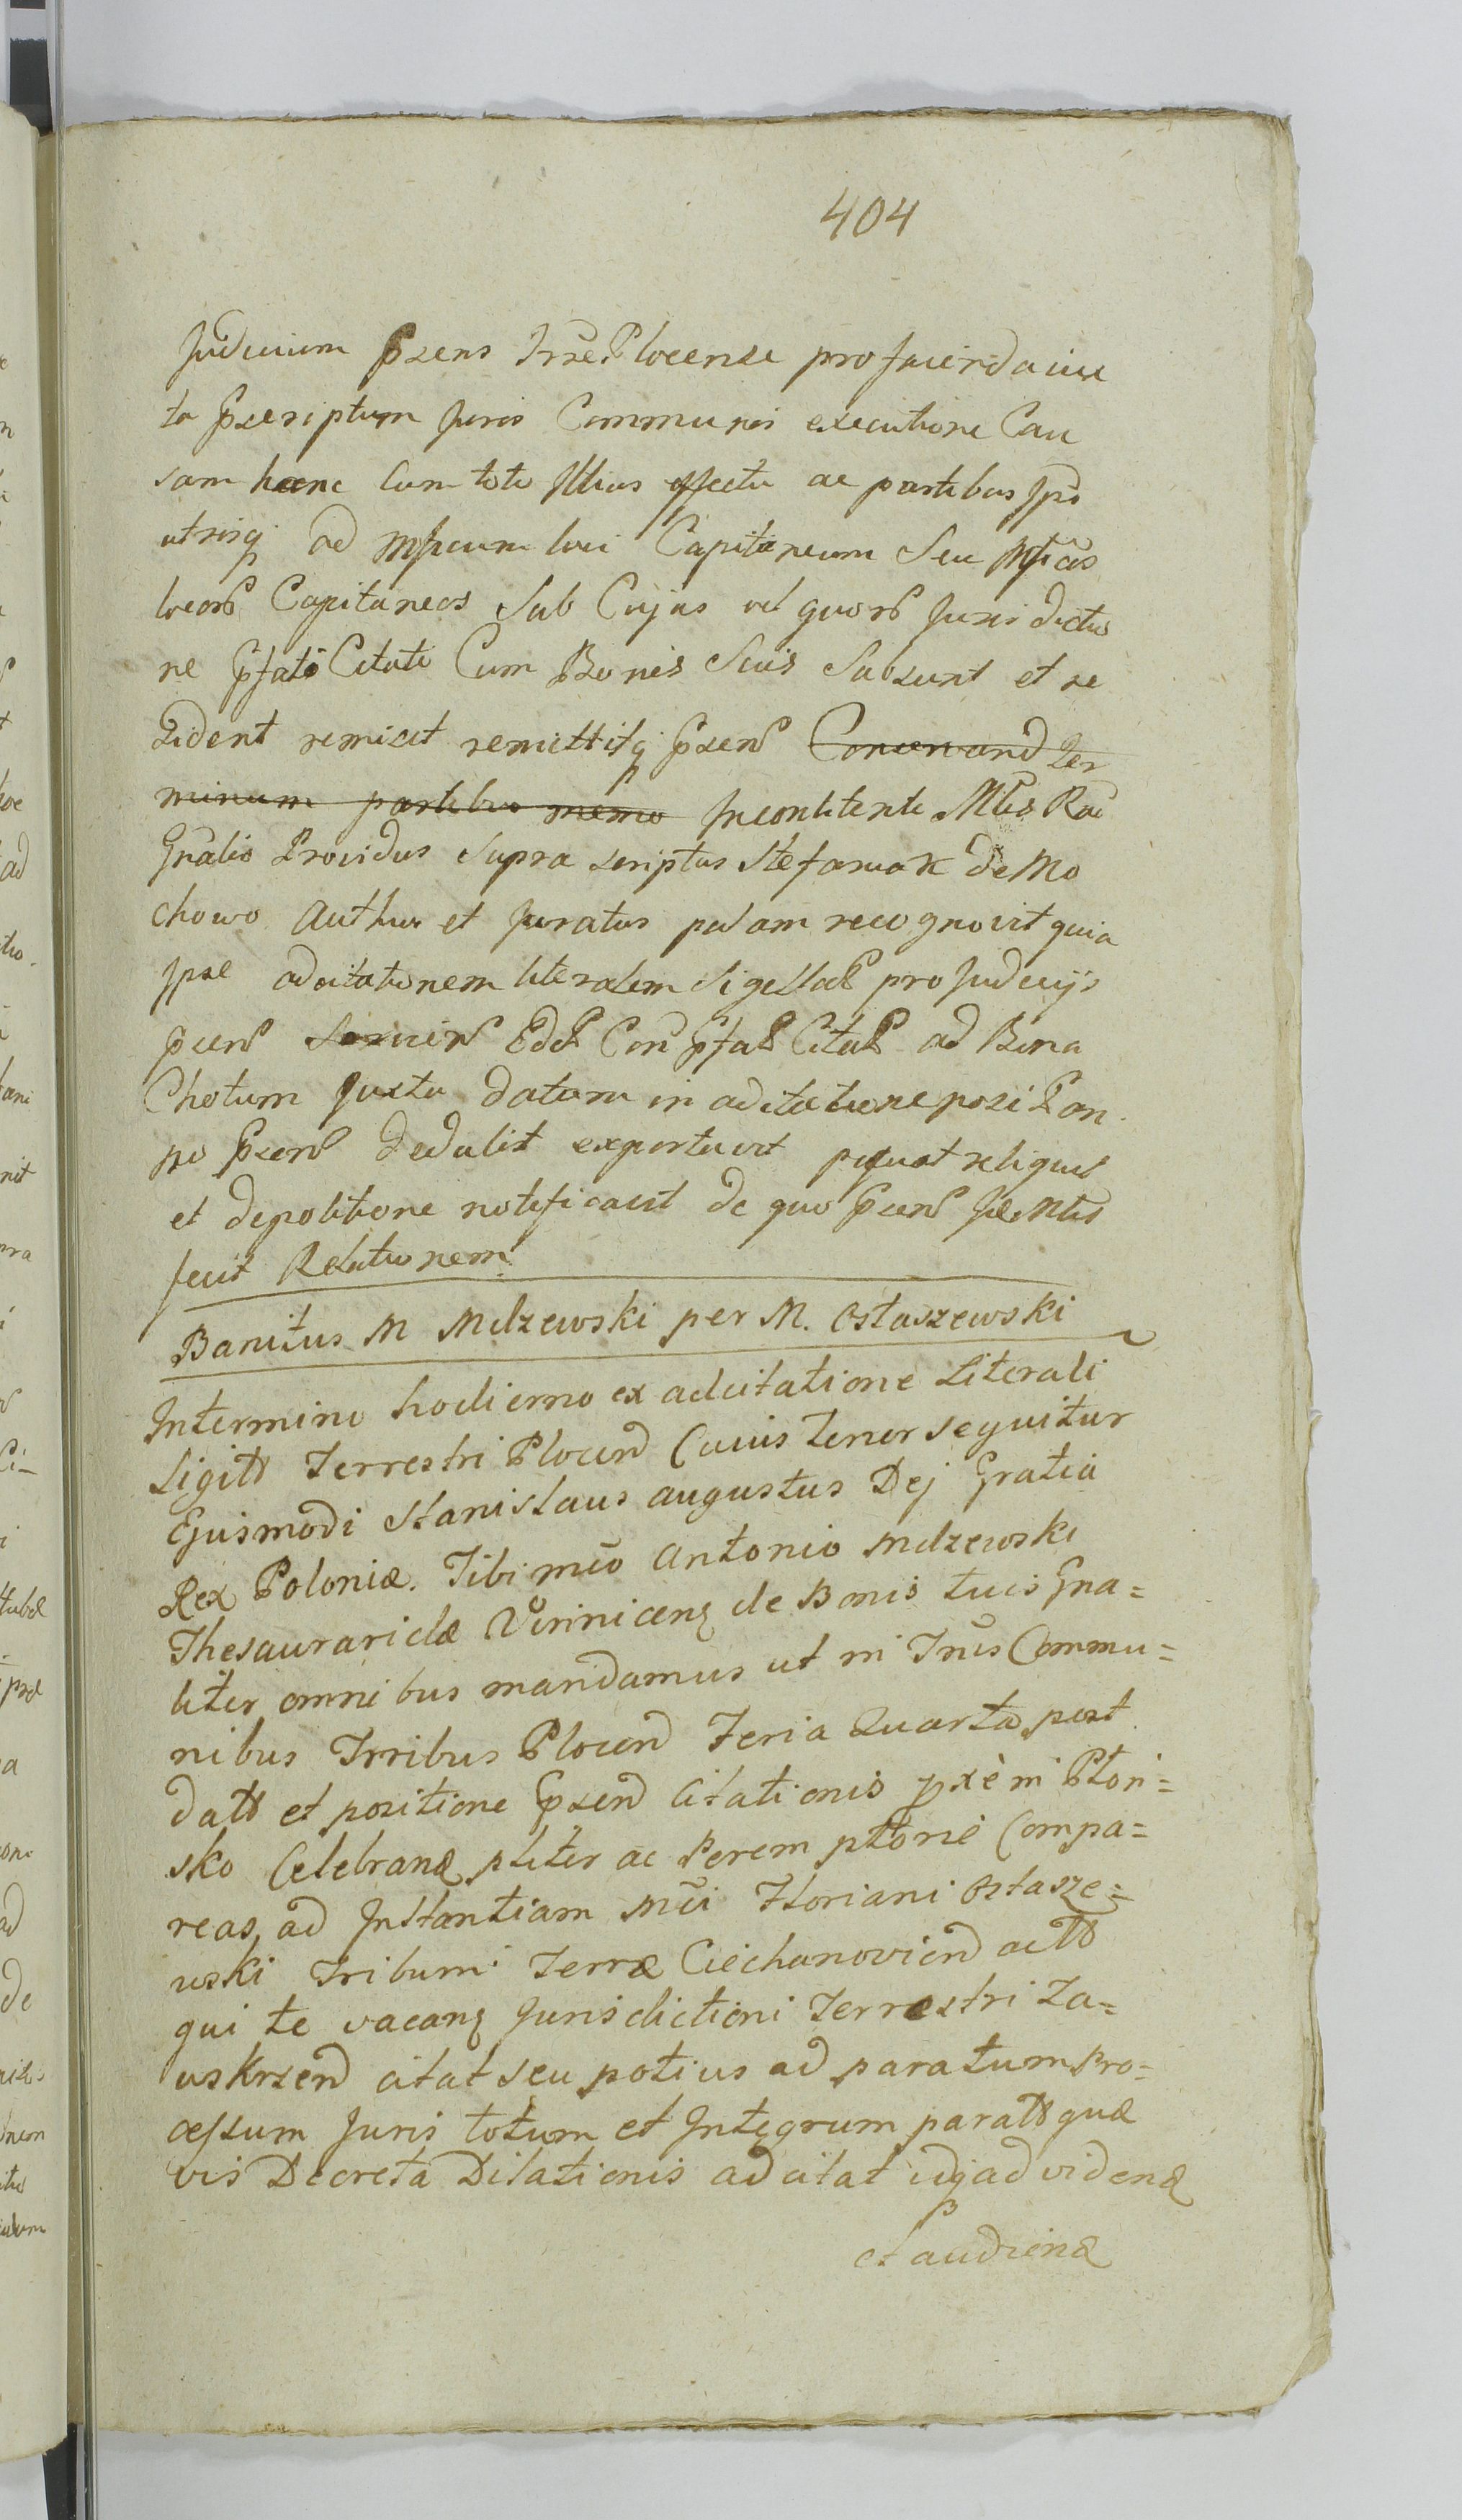 404
Judicium Pzens Trrae Plocense pro facienda iux
ta Pzscriptum Juris Communis executione Cau
sam hanc Cum toto Illius effectu ac partibus Ipō
utrisq ad Mfficum loci Capitaneum Seu Mfficos
locorū Capitaneos Sub Cujus vel quorū Jurisdictio
ne Pfati Citati Cum Bonis Suis Subsunt et re
sident remisit remittitq Pzen Conservand Ter
minum partibus memo In continenti Mtis Rae
Gnalis Providus Supra scriptus Stefaniak de Mo
chowo Author et Juratus palam recognovit quia
Ipse adcitationem literalem Sigillat pro Judicijs
Pzen Pfat Citat ad Bona
Chotum Juxta datam in adcitatione posit an
no Pzen detulit exportavit reliquit
et depositione notificavit de quo Pzen Mtis
fecit Relationem
Banitus M Mdzewski per M. Ostaszewski
In termino hodierno ex adcitatione Literali
Sigill Terrestri Plocen Cuius Tenor sequitur
Ejusmodi Stanislaus augustus Dej Gratia
Rex Poloniæ. Tibi mco Antonio Mdzewski
Thesauraridæ Vinnicen de Bonis tuis Gna=
liter omnibus mandamus ut in Trris Commu=
nibus Trribus Plocen Feria Quarta post
datt et positione Pzen Citationis pxe in Plon=
sko Celebran pliter ac Peremptorie Compa=
reas, ad Instantiam Mci Floriani Ostasze=
wski Tribuni Terræ Ciechanovien actt
qui te vacan Jurisdictioni Terrestri Za=
wskrzen citat seu potius ad paratum Pro=
cessum Juris totum et Integrum paratt quæ
vis Decreta Dilationis adcitat idq ad viden
et audien